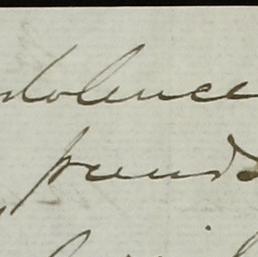 dolence
friends